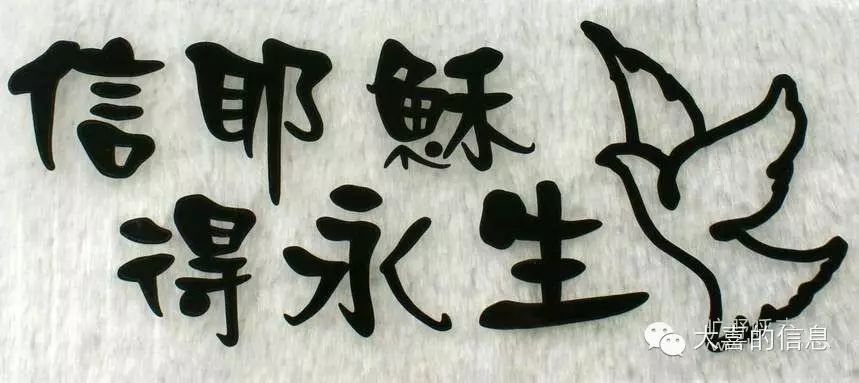 信耶穌
得永生
大喜的信息